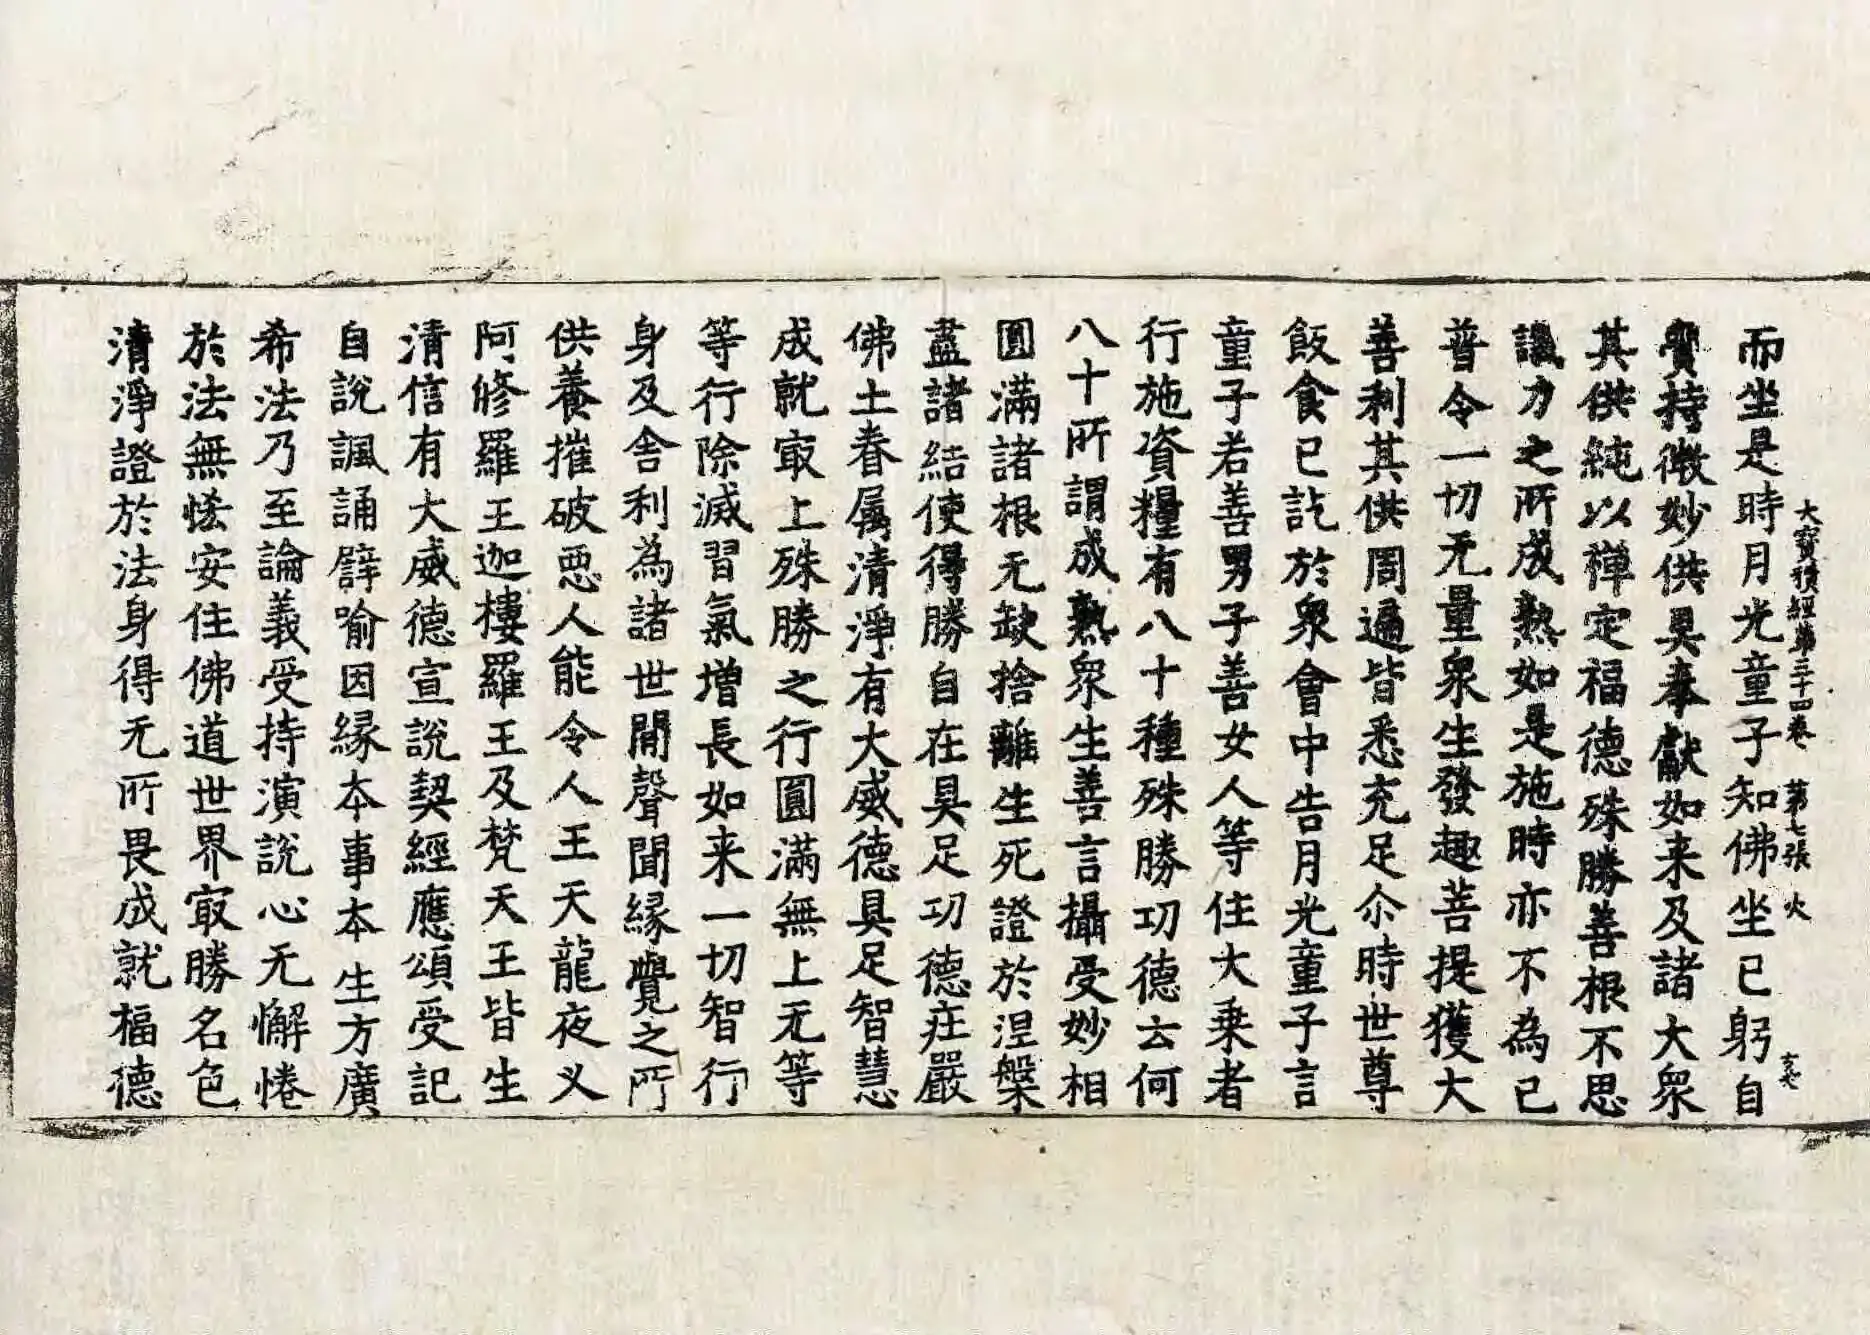 大寶積經第三十四卷 第七張 火
而坐是時月光童子知佛坐已躬自
賷持微妙供具奉獻如来及諸大衆
其供純以禅定福德殊勝善根不思
議力之所成熟如是施時亦不為已
普令一切无量衆生發趣菩提獲大
善利其供周遍皆悉充足尒時世尊
飯食已訖於衆會中告月光童子言
童子若善男子善女人等住大乗者
行施資糧有八十種殊勝功德云何
八十所謂成熟衆生善言攝受妙相
圓滿諸根无缺捨離生死證於涅槃
盡諸結使得勝自在具足功德庄嚴
佛土眷属清淨有大威德具足智慧
成就㝡上殊勝之行圓滿無上无等
等行除滅習氣增長如来一切智行
身及舎利為諸世間聲聞縁覺之所
供養摧破惡人能令人王天龍夜叉
阿修羅王迦樓羅王及梵天王皆生
清信有大威德宣說契經應頌受記
自說諷誦譬喻因縁本事本生方廣
希法乃至論義受持演說心无懈惓
於法無恡安住佛道世界㝡勝名色
清淨證於法身得无所畏成就福德